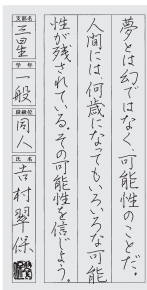 夢とは幻ではなく、可能性のことだ。
人間には、何歳になってもいろいろな可能
性が残されている。その可能性を信じよう。
支部名 三星 学年 一般 段級位 同人 氏名 吉村翠保